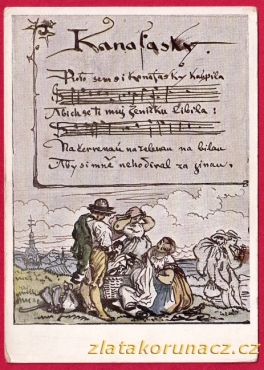 Kanafasky.
Proto sem si kanafasky kúpila
Abich se ti muj ženičku líbila:
Na červenau na zelenau na bílau
Aby si mně nehodíral za jinau,
zlatakorunacz.cz